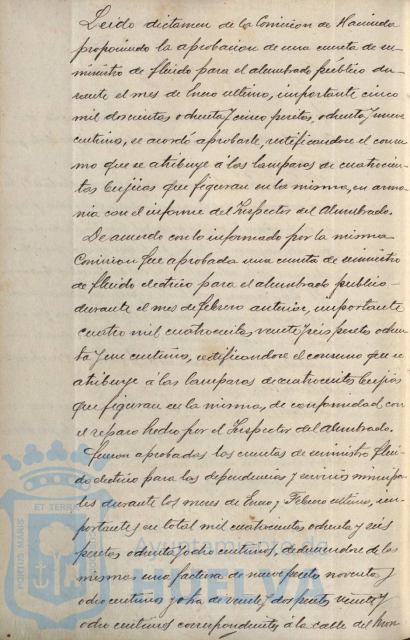 Leido dictamen de la Comision de Hacienda
proponiendo la aprobacion de una cuenta de su-
ministro de fluido para el alumbrado público du-
rante el mes de Enero ultimo, importante cinco
mil doscientas ochenta y cinco pesetas, ochenta y nueve
centimos, se acordó aprobarla, rectificandose el consu-
mo que se atribuye á las lamparas de cuatrocien-
tas bujias que figuran en la misma, en armo-
nia con el informe del Inspector del Alumbrado.
De acuerdo con lo informado por la misma
Comision fue aprobada una cuenta de suministro
de fluido electrico para el alumbrado publico
durante el mes de Febrero anterior, importante
cuatro mil cuatrocientas veinte y seis pesetas ochen-
ta y un centimos, rectificandose el consumo que se
atribuye á las lamparas de cuatrocientas bujias
que figuran en la misma, de conformidad con
el reparo hecho por el Inspector del Alumbrado.
Fueron aprobadas las cuentas de suministro flui-
do electrico para las dependencias y servicios municipa-
les durante los meses de Enero y Febrero ultimo, im-
portantes en total mil cuatrocientas ochenta y seis
pesetas ochenta y ocho centimos, deduciendose de las
mismas una factura de nueve pesetas noventa y
ocho centimos y otra de veinte y dos pesetas veinte y
ocho centimos correspondientes á la calle del Mon-
PORTUS MARIS
ET TERRAE
Ayuntamiento de
HUELVA